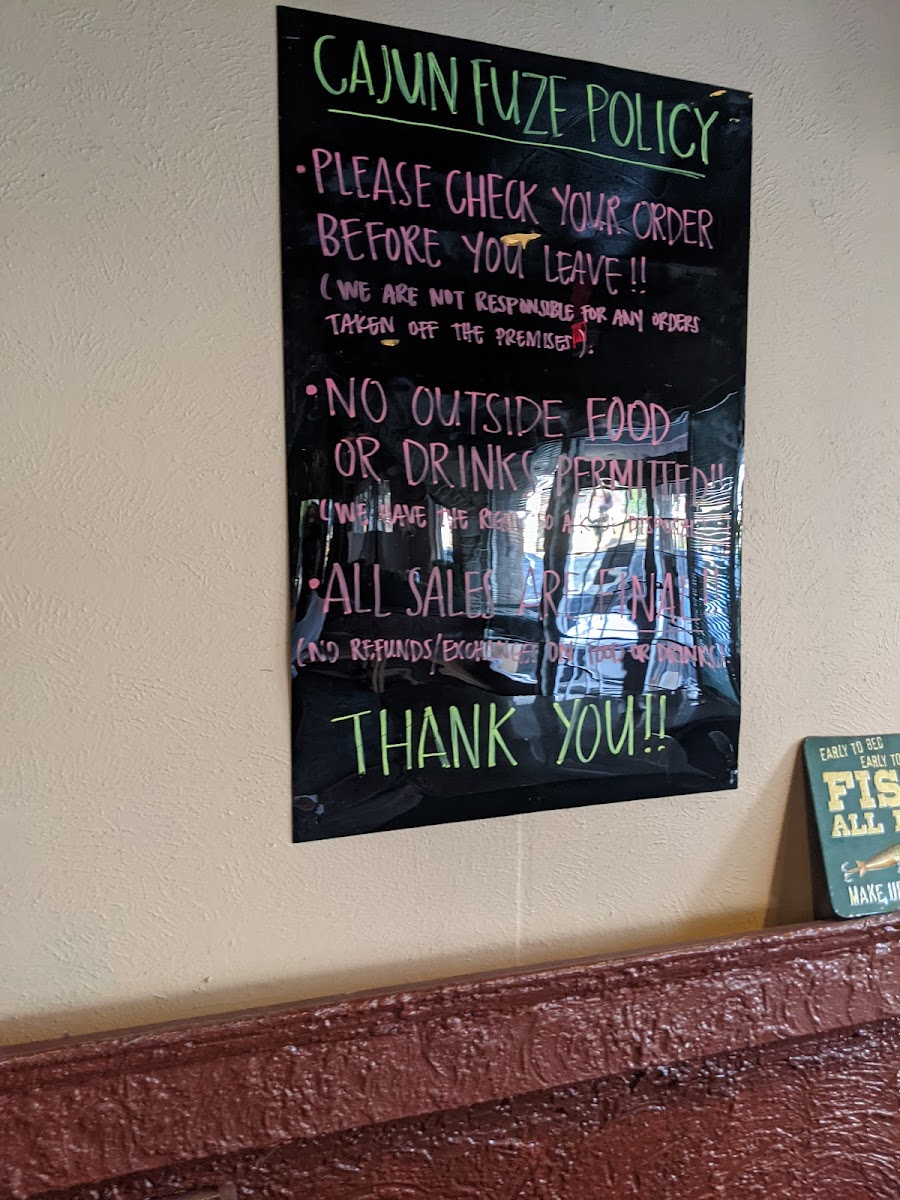 CAJUN FUZE POLICY
• PLEASE CHECK YOUR ORDER
BEFORE YOU LEAVE!!
(WE ARE NOT RESPONSIBLE FOR ANY ORDERS
TAKEN OFF THE PREMISES).
• NO OUTSIDE FOOD
OR DRINKS PERMITTED!!
(WE HAVE THE RIGHT TO
• ALL SALES ARE FINAL!!
(NO REFUNDS/EXCHANGES ON FOOD OR DRINKS)
THANK YOU!!
EARLY TO BED
EARLY TO
FIS
ALL
MAKE UP